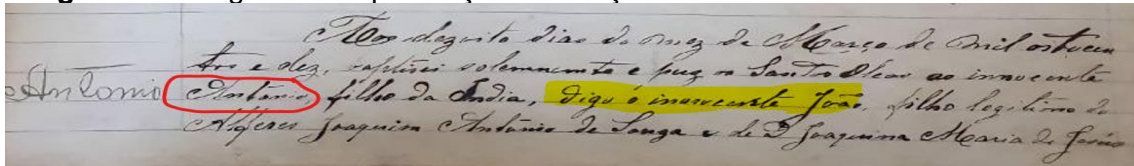 Aos dezoito dias do mez de Março de mil oitocen
tos e dez, baptisei solemnemente e puz os Santos Oleos ao innocente
Antonio Antônio, filho da India, digo o innocente João, filho legitimo do
Alferes Joaquim Antônio de Souza e de D Joaquina Maria de Jesús